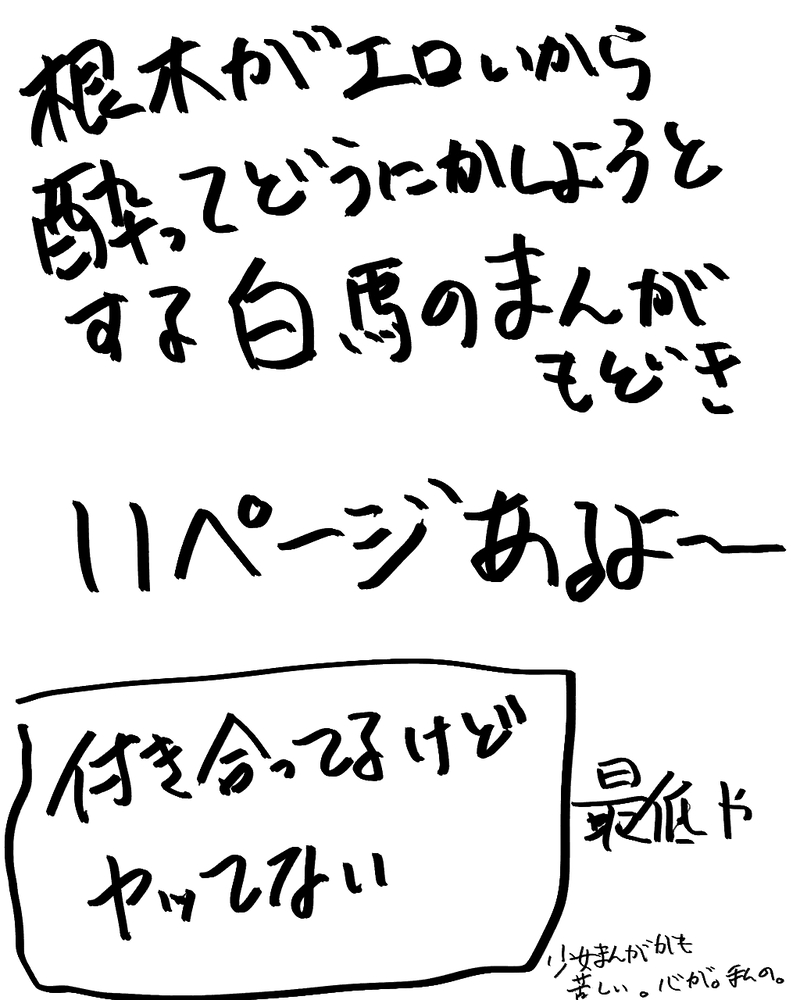 根木がエロいから
酔ってどうにかしようと
する白馬のまんが
もどき
11ページあるよ〜
付き合ってるけど
ヤッてない
最低や
少女まんがかも
苦しい。心が。まんの。